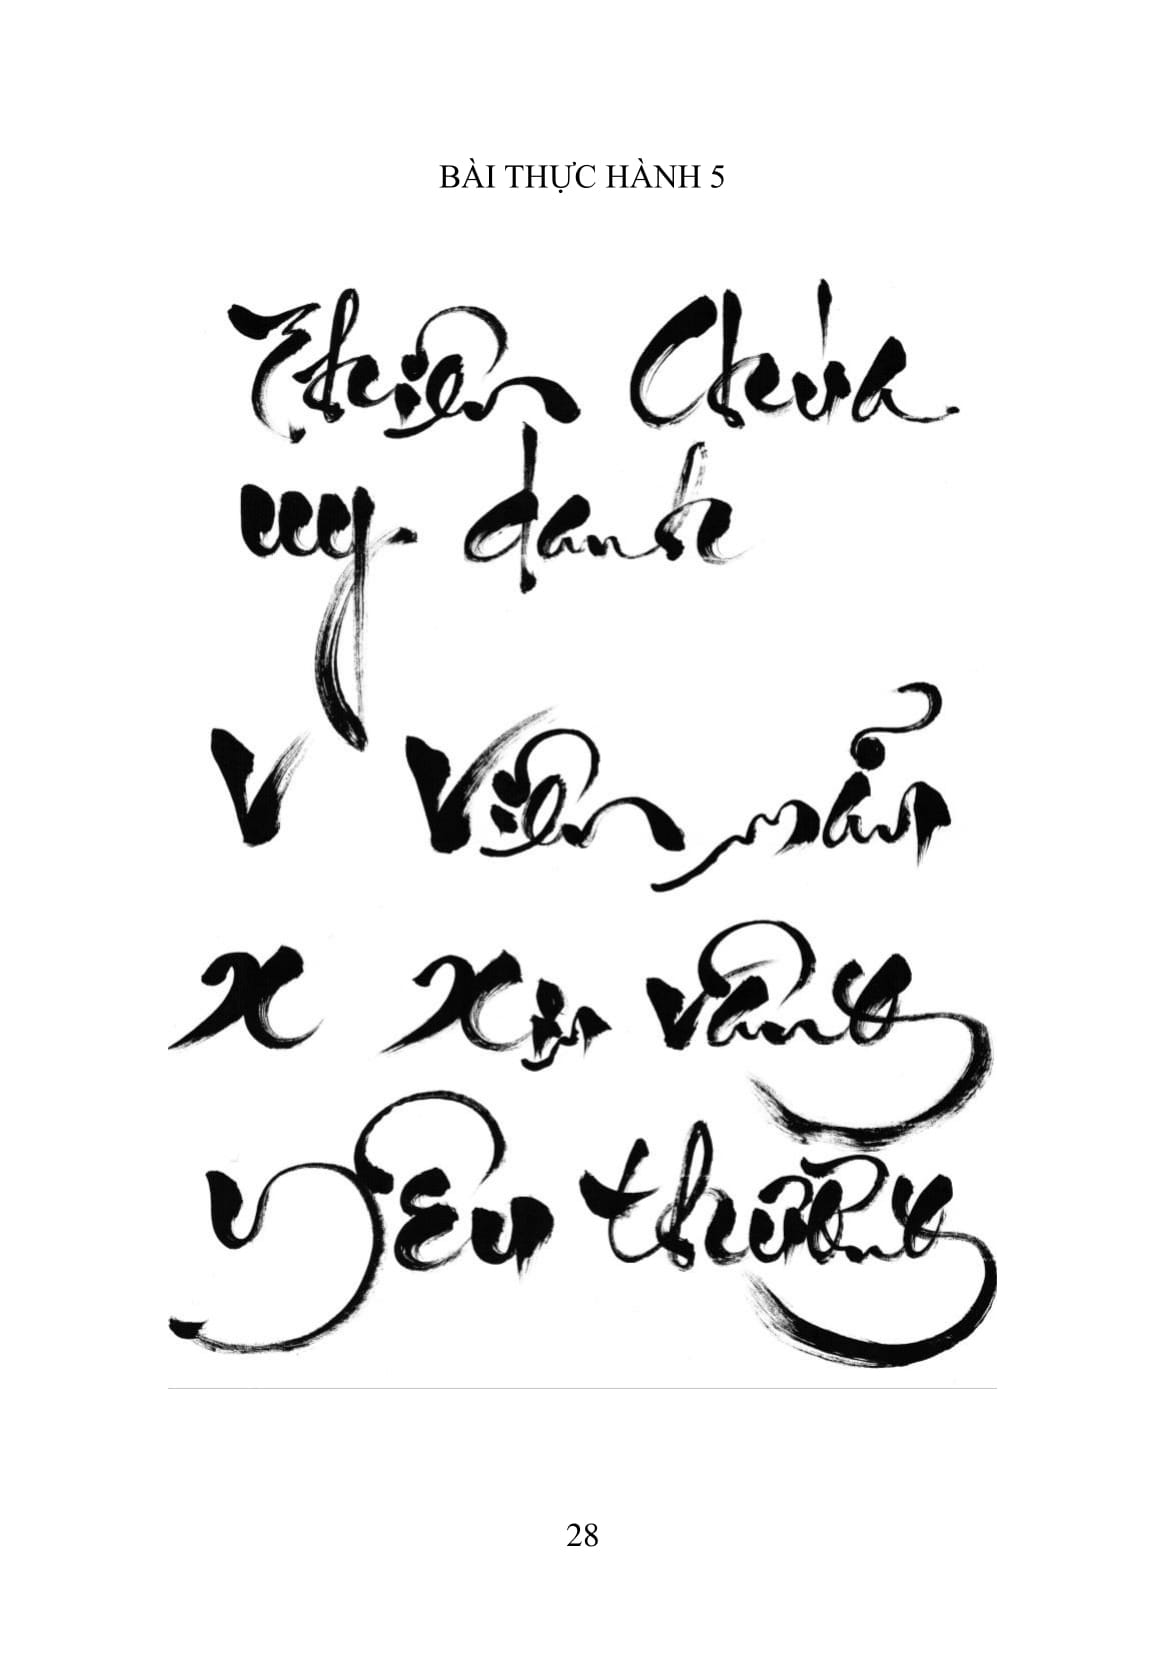 BÀI THỰC HÀNH 5
Thiên Chúa
uy danh
V Viên mãn
X Xin vâng
Yêu thương
28